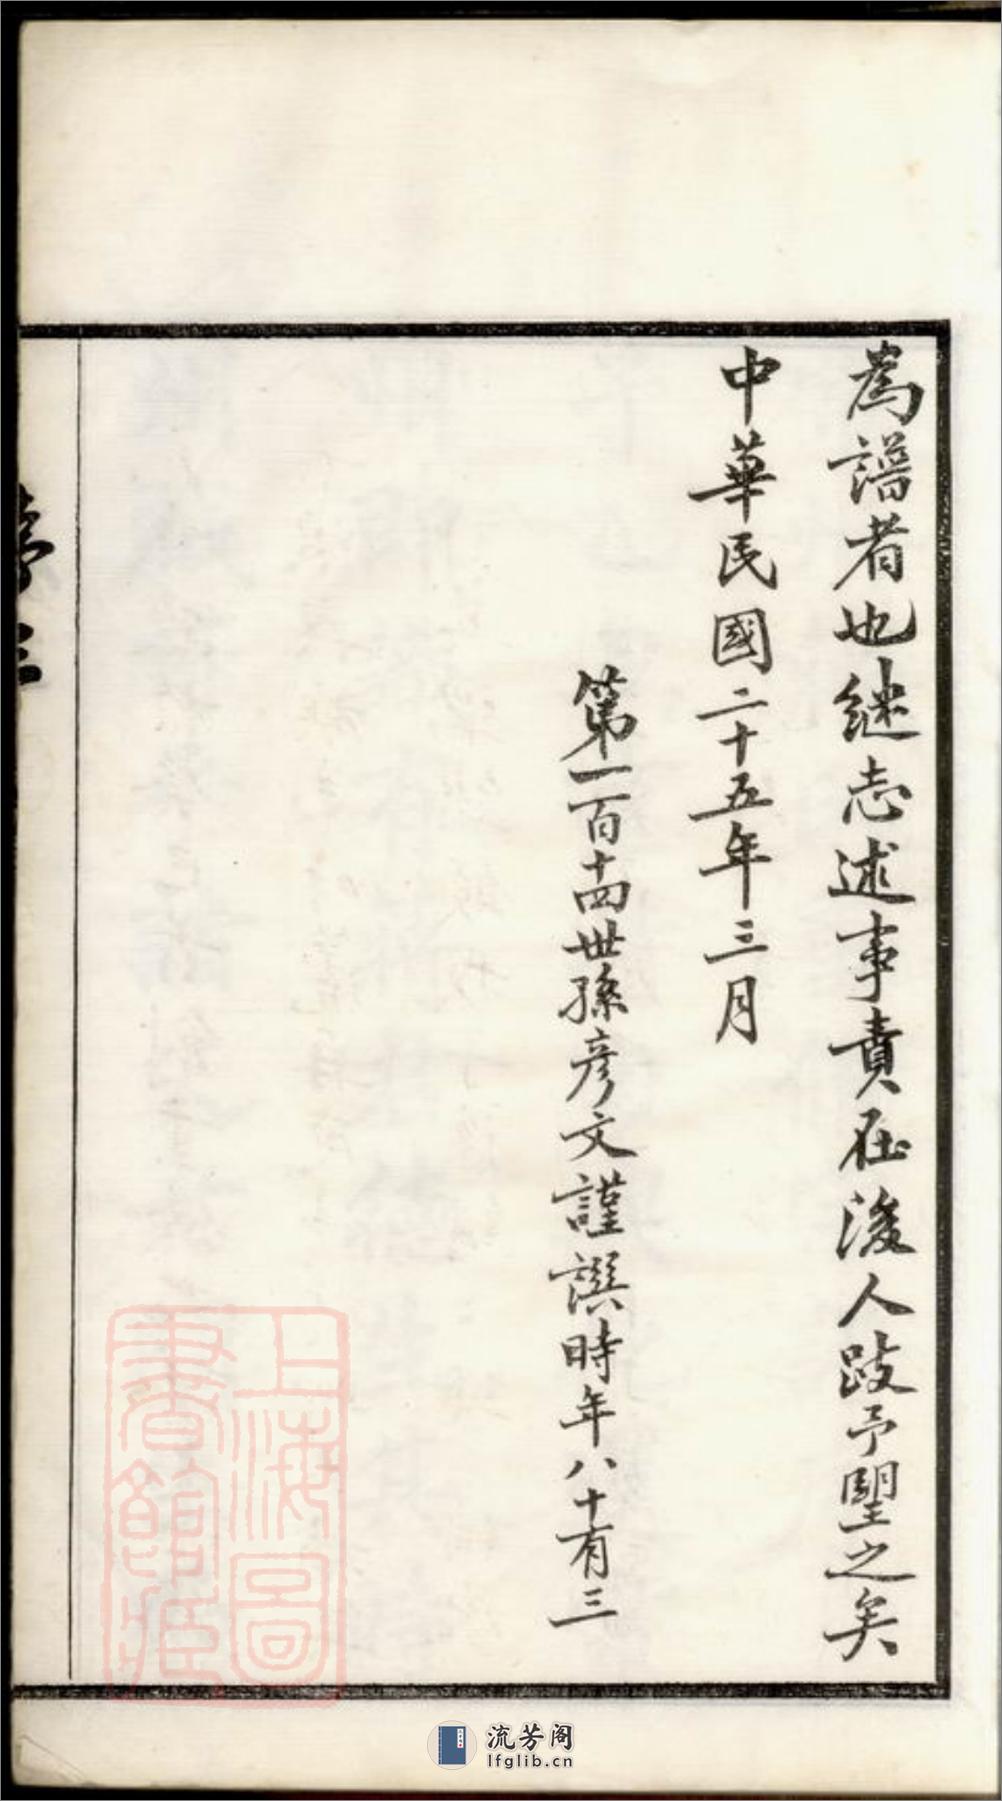 為譜者也継志述事責在後人跂予望之矣
中華民國二十五年三月
第一百十四世孫彦文謹譔時年八十有三
上海圖書館藏
流芳阁
lfglib.cn